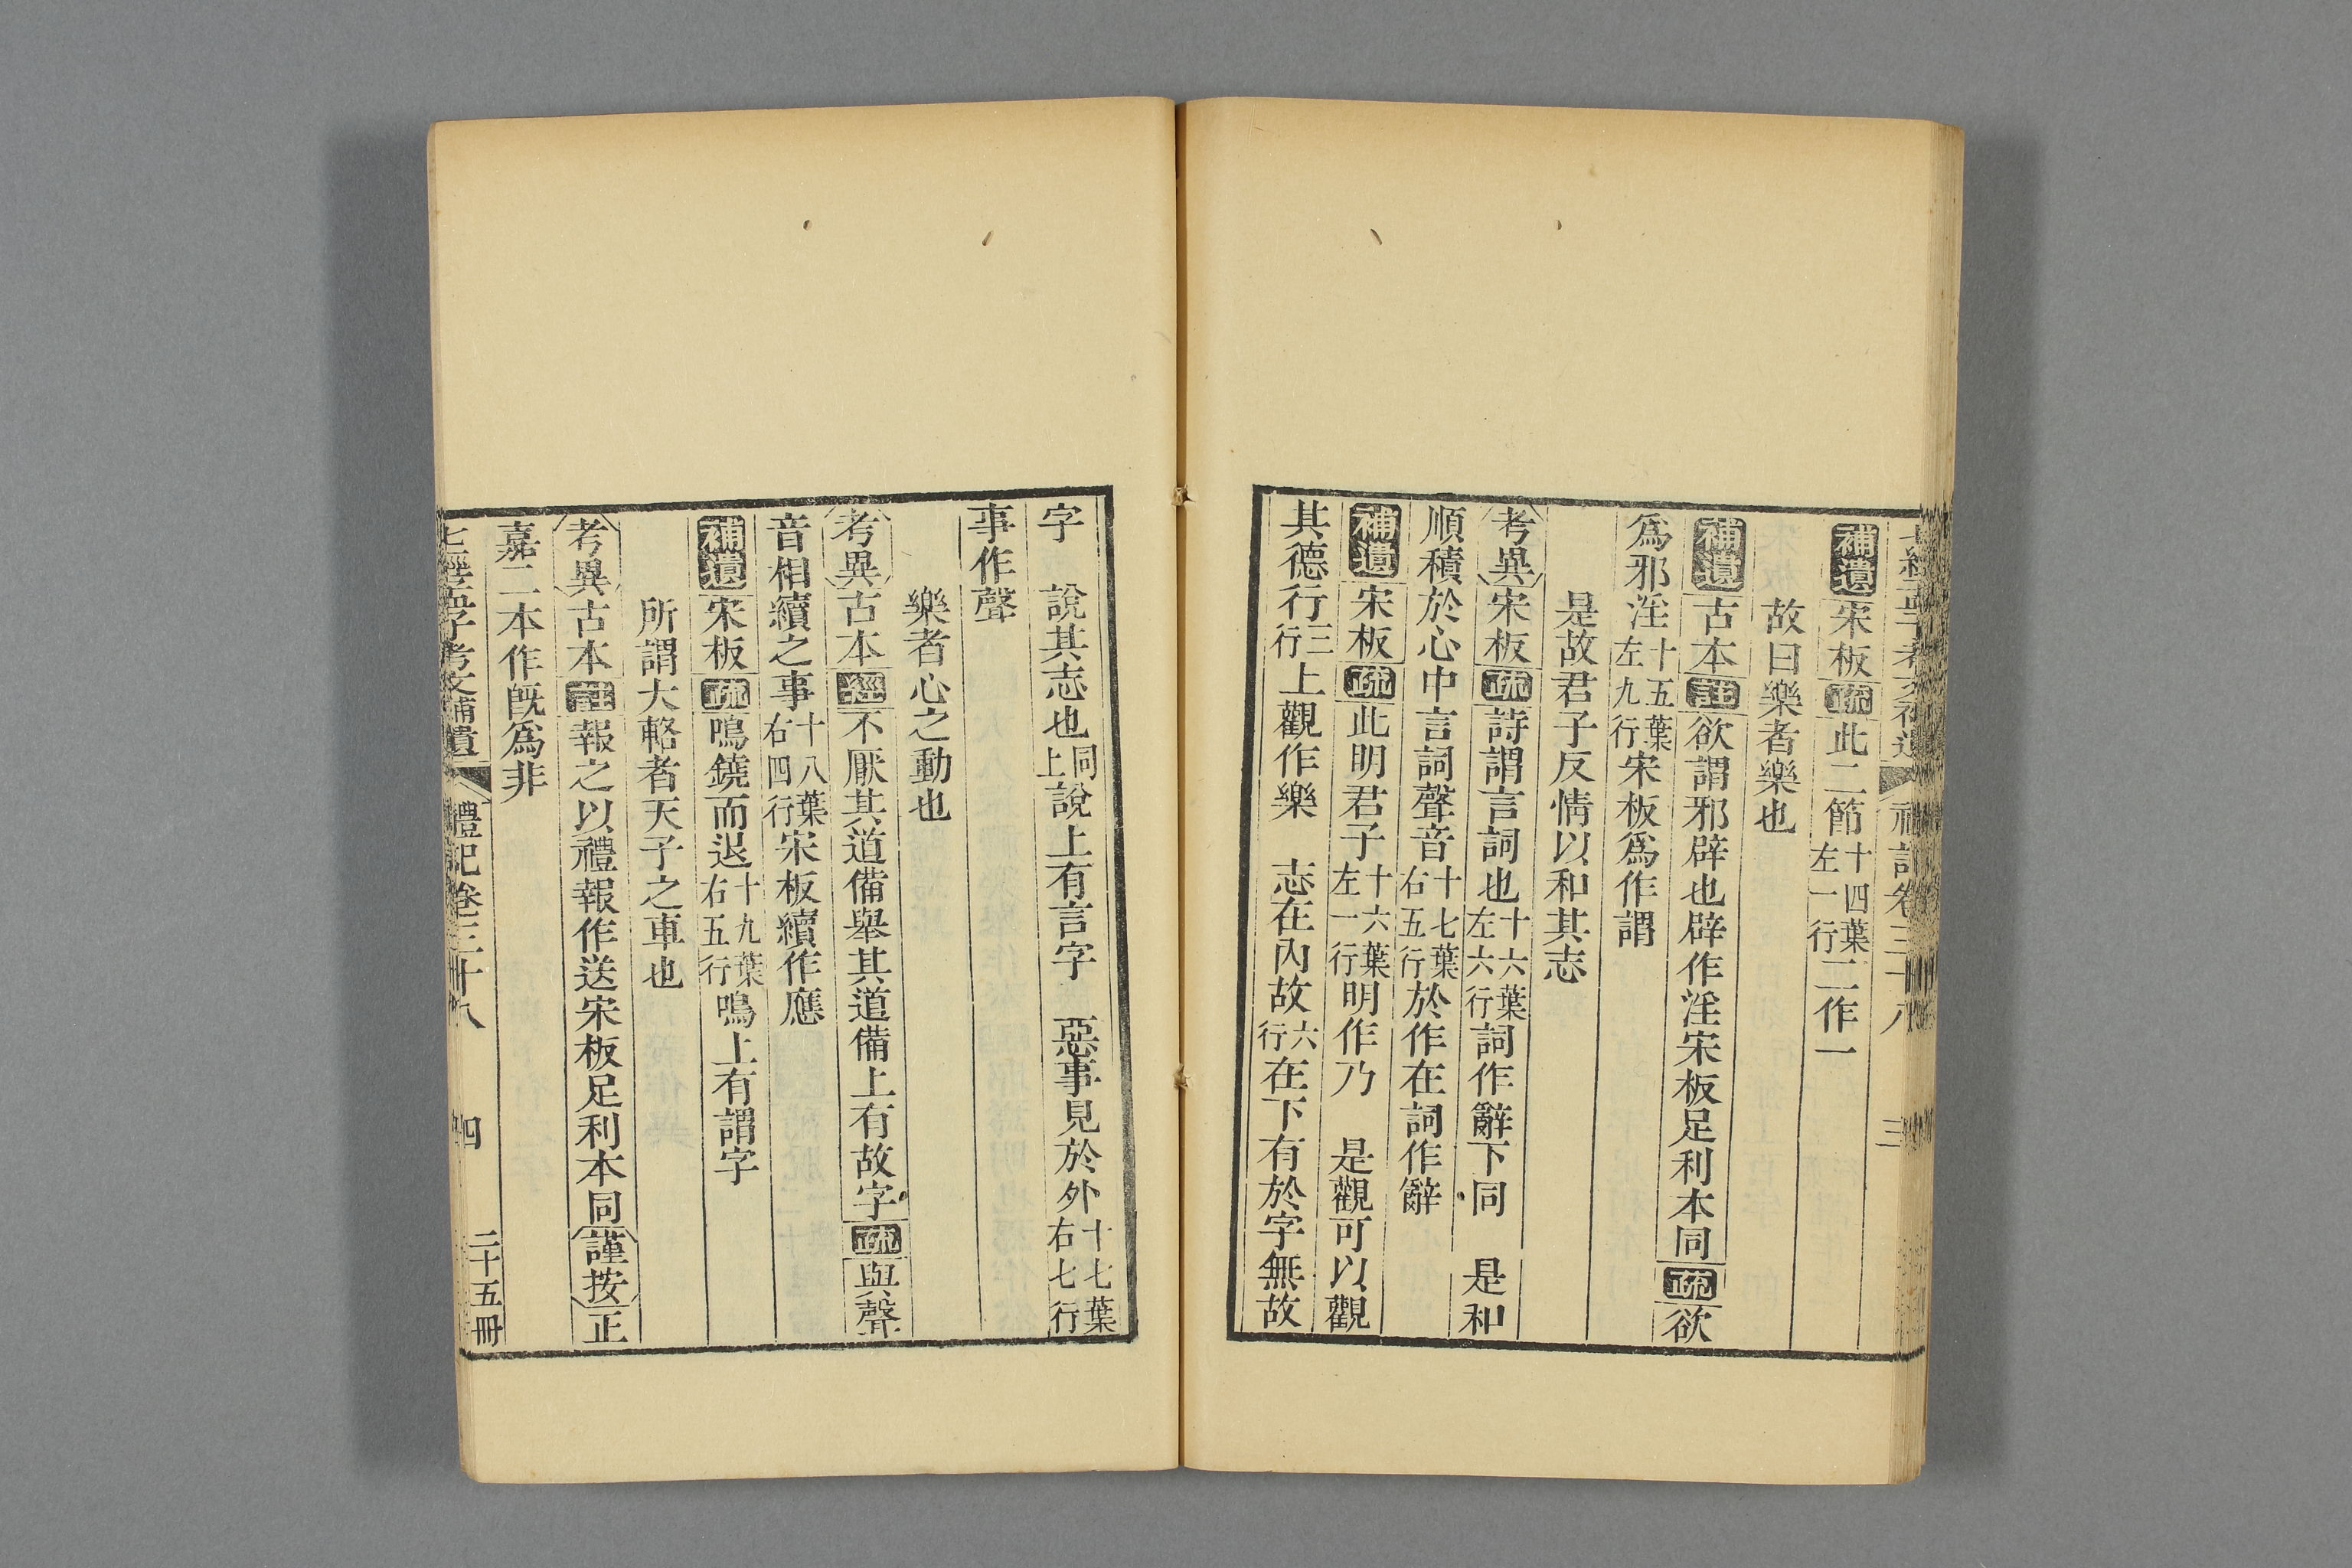 補遺宋板疏此二節十四葉左一行二作一
故曰樂者樂也
補遺古本註欲謂邪辟也辟作淫宋板足利本同疏欲
爲邪淫十五葉左九行宋板爲作謂
是故君子反情以和其志
考異宋板疏詩謂言詞也十六葉左六行詞作辭下同 是和
順積於心中言詞聲音十七葉右五行於作在詞作辭
補遺宋板疏此明君子十六葉左一行明作乃 是觀可以觀
其德行三行上觀作樂 志在內故六行在下有於字無故
字 說其志也同上說上有言字 惡事見於外十七葉右七行
事作聲
樂者心之動也
考異古本經不厭其道備舉其道備上有故字疏與聲
音相續之事十八葉右四行宋板續作應
補遺宋板疏鳴鐃而退十九葉右五行鳴上有謂字
所謂大輅者天子之車也
考異古本註報之以禮報作送宋板足利本同謹按正
嘉二本作旣爲非
七經孟子考文補遺 禮記卷三十八 四 二十五冊